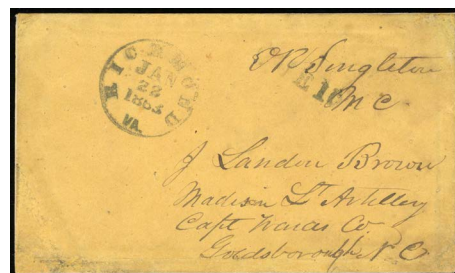 RICHMOND
JAN
22
1863
VA.
Singleton
M C
J Landon Brown
Madison Lt Artillery
Capt Co
Goldsborough N C